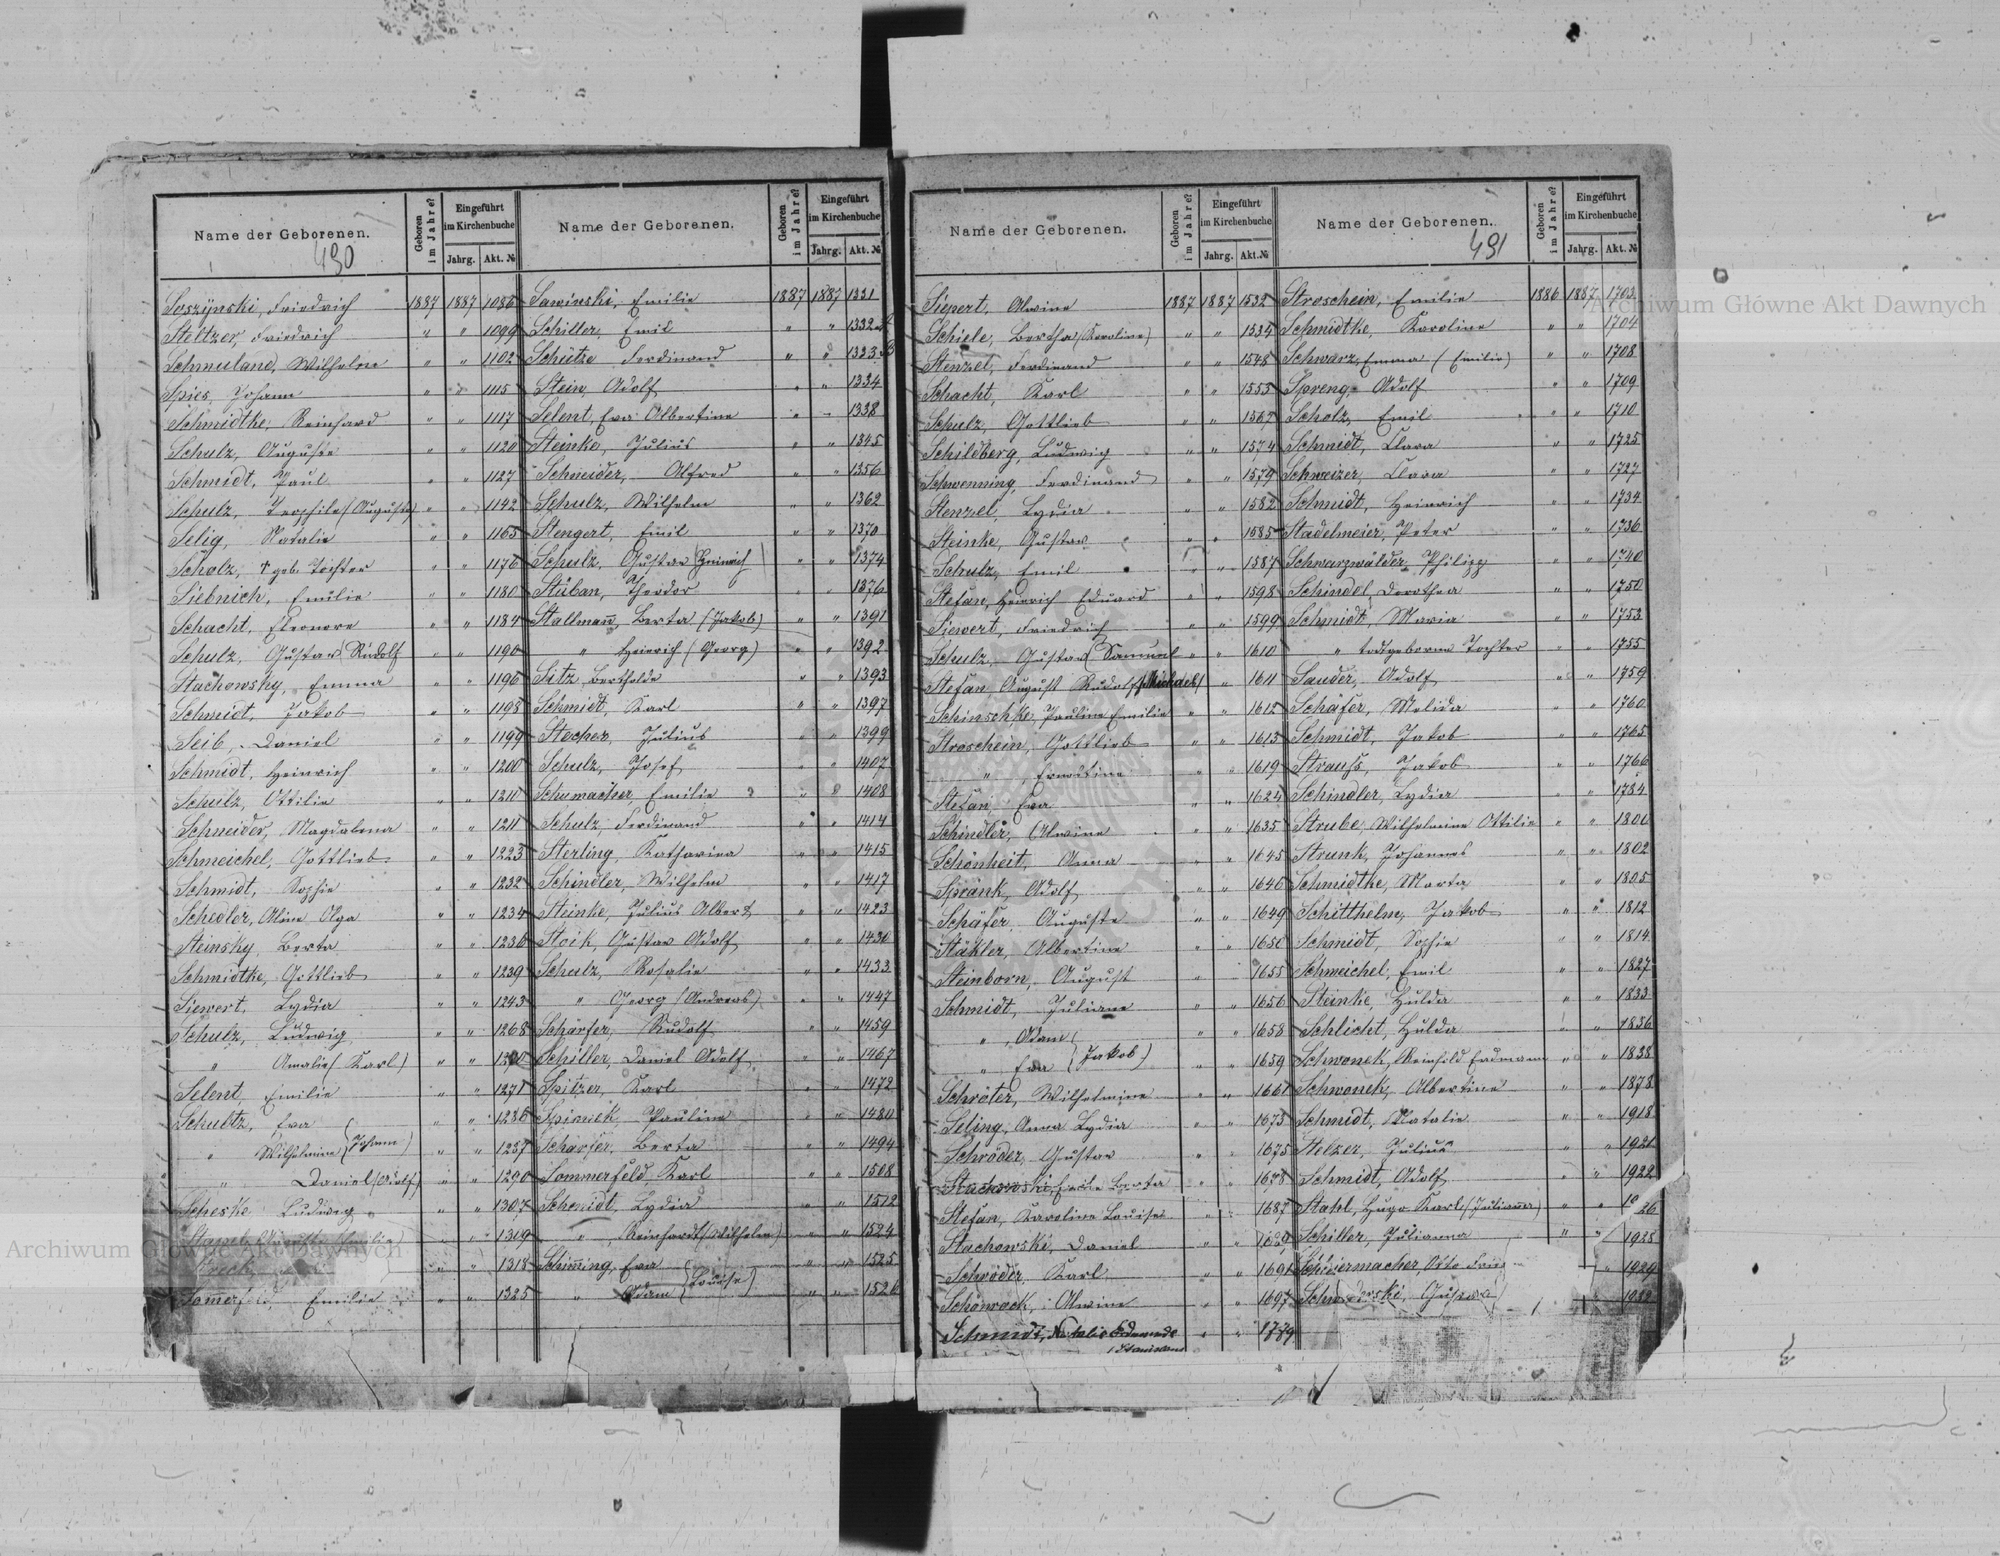 Name der Geborenen.
490
Geboren im Jahre?
Eingeführt im Kirchenbuche
Jahrg. Akt. №
Soszÿnski, Friedrich 1887 1887 1086
Steltzer, Friedrich " " 1099
Schmuland, Wilhelm " " 1102
Spies, Johann " " 1115
Schmidtke, Reinhard " " 1117
Schulz, Auguste " " 1120
Schmidt, Paul " " 1127
Schulz, Teophile (August) " " 1142
Selig, Natalie " " 1165
Scholz, † geb. Tochter " " 1176
Siebnich, Emilie " " 1180
Schacht, Eleonore " " 1184
Schulz, Gustav Rudolf " " 1190
Stachowsky, Emma " " 1196
Schmidt, Jakob " " 1198
Seib, Daniel " " 1199
Schmidt, Heinrich " " 1200
Schulz, Ottilie " " 1210
Schneider, Magdalena " " 1211
Schmeichel, Gottlieb " " 1223
Schmidt, Sophie " " 1232
Schedler, Aline Olga " " 1234
Steinsky, Berta " " 1236
Schmidtke, Gottlieb " " 1239
Siewert, Lydia " " 1243
Schulz, Ludwig " " 1268
" Amalie (Karl) " "
Selent, Emilie " " 1271
Schultz, Eva " " 1286
" Wilhelmine (Johann) " " 1287
" Daniel (Adolf) " " 1290
Scheske Ludwig " " 1307
" " 1309
" " 1318
Sommerfeld, Emilie " " 1325
Name der Geborenen.
Geboren im Jahre?
Eingeführt im Kirchenbuche
Jahrg. Akt. №
Sawinski, Emilie 1887 1887 1331
Schiller, Emil " " 1332
Schütze Ferdinand " " 1323
Stein, Adolf " " 1334
Selent, Eva Albertine " " 1338
Steinke, Julius " " 1345
Schneider, Alfred " " 1356
Schulz, Wilhelm " " 1362
Stengert, Emil " " 1370
Schulz, Gustav (Heinrich) " " 1374
Stüban, Theodor " " 1376
Stallmann, Berta (Jakob) " " 1391
" Heinrich (Georg) " " 1392
Sitz, Berthilde " " 1393
Schmidt, Karl " " 1397
Stecher, Julius " " 1399
Schulz, Josef " " 1407
Schumacher Emilie " " 1408
Schulz, Ferdinand " " 1414
Sterling, Katharina " " 1415
Schindler, Wilhelm " " 1417
Steinke, Julius Albert " " 1423
Stoik, Gustav Adolf " " 1430
Schulz, Rosalie " " 1433
" Georg (Andreas) " " 1447
Schärfer, Rudolf " " 1459
Schiller, Daniel Adolf " " 1467
Spitzer, Karl " " 1472
Spionek, Pauline " " 1480
Schärfer, Berta " " 1494
Sommerfeld, Karl " " 1508
Schmidt, Lydia " " 1512
" Reinhardt (Wilhelm) " " 1524
Schimming, Eva " " 1525
" Adam (Louise) " " 1526
Name der Geborenen.
Geboren im Jahre?
Eingeführt im Kirchenbuche
Jahrg. Akt. №
Siepert, Alwine 1887 1887 1532
Schiele, Bertha (Karoline) " " 1534
Stenzel, Ferdinand " " 1548
Schacht, Karl " " 1553
Schulz, Gottlieb " " 1567
Schildberg, Ludwig " " 1574
Schwenning, Ferdinand " " 1579
Stenzel, Lydia " " 1582
Steinke, Gustav " " 1585
Schulz, Emil " " 1587
Stefan, Heinrich Eduard " " 1598
Siewert, Friedrich " " 1599
Schulz, Gustav Samuel " " 1610
Stefan August Rudolf (Michael) " " 1611
Schinschke, Pauline Emilie " " 1612
Stroschein, Gottlieb " " 1613
" Ernestine " " 1619
Stefan, Eva " " 1624
Schindler, Alwine " " 1635
Schönheit, Anna " " 1645
Spränk, Adolf " " 1646
Schäfer, Auguste " " 1649
Stäkler, Albertine " " 1650
Steinborn, August " " 1655
Schmidt, Juliane " " 1656
" Adam " " 1658
" Eva (Jakob) " " 1659
Schröter, Wilhelmine " " 1661
Seling, Anna Lydia " " 1673
Schröder, Gustav " " 1675
Stachowski, Berta " " 1678
Stefan, Karoline Louise " " 1687
Stachowski, Daniel " "
Schröder, Karl " " 1691
Schönrock, Alwine " " 1697
Schmidt, Natalie " " 1779
Name der Geborenen.
491
Geboren im Jahre?
Eingeführt im Kirchenbuche
Jahrg. Akt. №
Stroschein, Emilie 1886 1887 1703
Schmidtke, Karoline " " 1704
Schwarz, Emma (Emilie) " " 1708
Spreng, Adolf " " 1709
Scholz, Emil " " 1710
Schmidt, Clara " " 1725
Schweizer, Clara " " 1727
Schmidt, Heinrich " " 1734
Stadelmeier, Peter " " 1736
Schwarzwälder, Philipp " " 1740
Schindel, Dorothea " " 1750
Schmidt, Maria " " 1753
" todtgeborene Tochter " " 1755
Sauder, Adolf " " 1759
Schäfer, Melida " " 1760
Schmidt, Jakob " " 1765
Strauss, Jakob " " 1766
Schindler, Lydia " " 1784
Strube, Wilhelmine Ottilie " " 1801
Strunk, Johannes " " 1802
Schmidtke, Marta " " 1805
Schitthelm, Jakob " " 1812
Schmidt, Sophie " " 1814
Schmeichel, Emil " " 1827
Steinke, Hulda " " 1833
Schlicht, Hulda " " 1836
Schwonek, Reinhold Erdmann " " 1838
Schwonek, Albertine " " 1878
Schmidt, Natalie " " 1918
Stelzer, Julius " " 1921
Schmidt, Adolf " " 1922
Stahl, Hugo Karl (Julianna) " " 1926
Schiller, Julianna " " 1928
Schiermacher, Otto " 1929
Archiwum Główne Akt Dawnych
Archiwum Główne Akt Dawnych